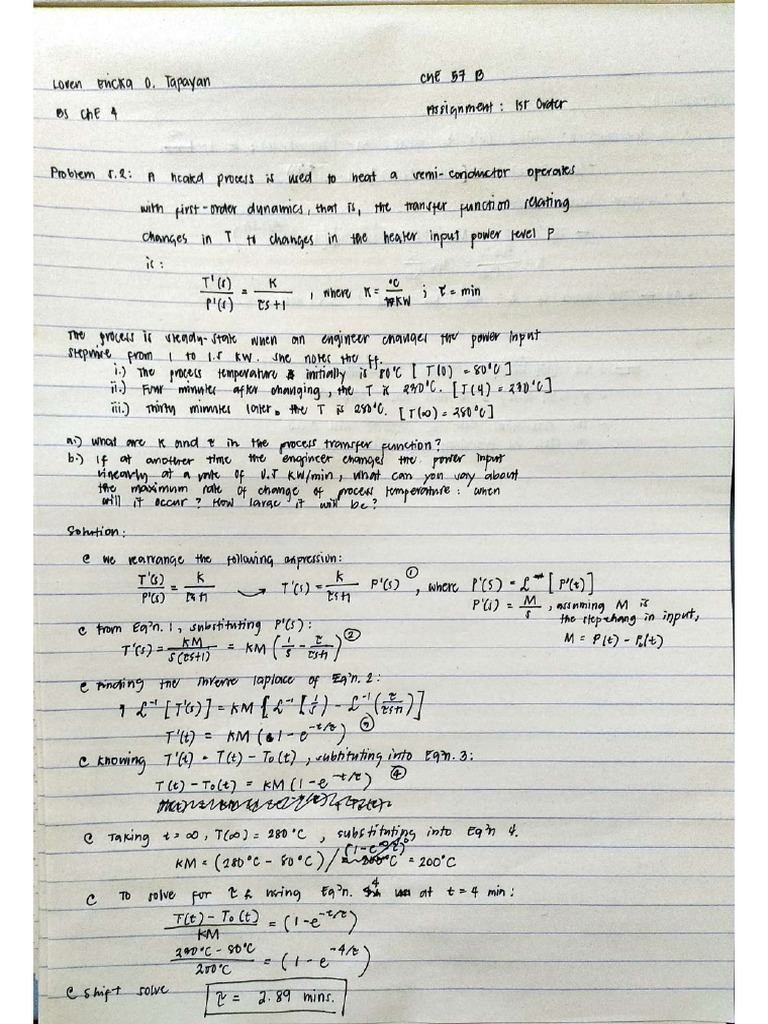 Loren Ericka O. Tapayan
ChE 57 B
BS ChE 4
Assignment: 1st Order
Problem 5.2: A heated process is used to heat a semi-conductor operates
with first-order dynamics, that is, the transfer function relating
changes in T to changes in the heater input power level P
is:
T'(s)/P'(s) = K/τs+1 , where K = °C/KW ; τ = min
The process is steady-state when an engineer changes the power input
stepwise from 1 to 1.5 KW. She notes the ff.
i.) The process temperature is initially is 80°C [T(0) = 80°C]
ii.) Four minutes after changing, the T is 230°C. [T(4) = 230°C]
iii.) Thirty minutes later, the T is 280°C. [T(∞) = 280°C]
a.) What are K and τ in the process transfer function?
b.) If at another time the engineer changes the power input
linearly at a rate of 0.5 KW/min, what can you say about
the maximum rate of change of process temperature: when
will it occur? How large it will be?
Solution:
@ we rearrange the following expression:
T'(s)/P'(s) = K/τs+1 → T'(s) = K/τs+1 P'(s) ①, where P'(s) = ℒ [P'(t)]
P'(s) = M/s , assuming M is
the step chang in input,
@ From Eq'n. 1, substituting P'(s):
M = P(t) - P₀(t)
T'(s) = KM/s(τs+1) = KM (1/s - τ/τs+1) ②
@ Finding the inverse laplace of Eq'n. 2:
ℒ⁻¹ [T'(s)] = KM [ℒ⁻¹ (1/s) - ℒ⁻¹ (τ/τs+1)]
T'(t) = KM (1 - e^-t/τ) ③
@ Knowing T'(t) = T(t) - T₀(t), subtituting into Eq'n. 3:
T(t) - T₀(t) = KM (1 - e^-t/τ) ④
@ Taking t = ∞, T(∞) = 280°C , substituting into Eq'n 4.
KM = (280°C - 80°C) / (1-e^-∞/τ) = 200°C
@ To solve for τ & using Eq'n. 4 at t = 4 min:
T(t) - T₀(t)/KM = (1 - e^-t/τ)
230°C - 80°C/200°C = (1 - e^-4/τ)
@ shift solve
τ = 2.89 mins.